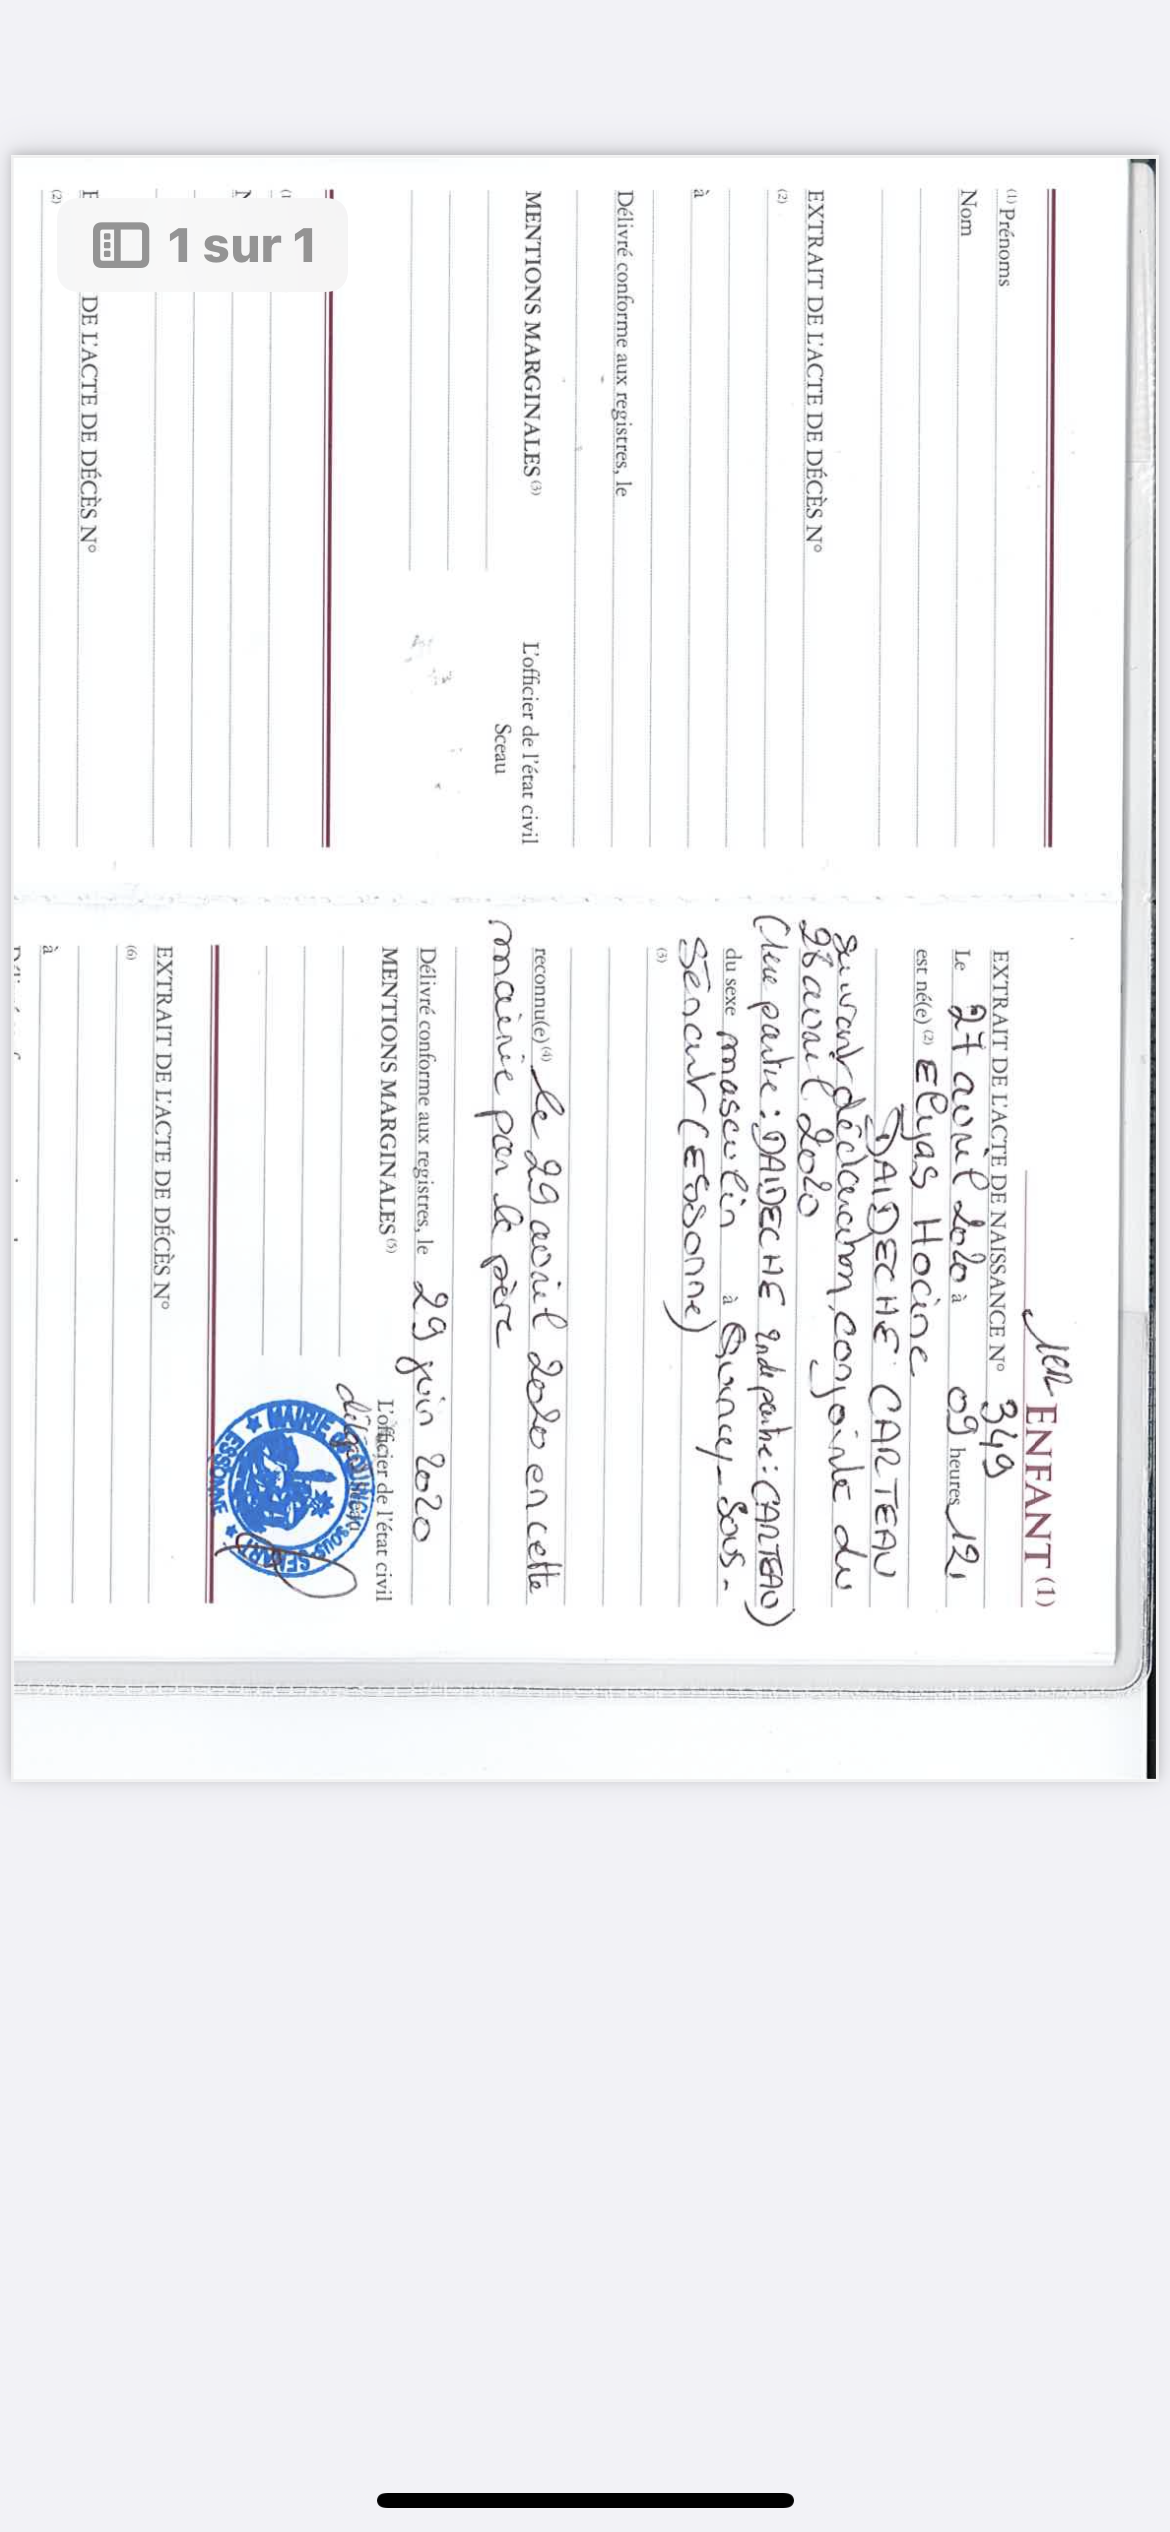 1 sur 1
(1) Prénoms
Nom
EXTRAIT DE L'ACTE DE DÉCÈS N°
(2)
à
Délivré conforme aux registres, le
MENTIONS MARGINALES (3)
L'officier de l'état civil
Sceau
DE L'ACTE DE DÉCÈS N°
(2)
1er ENFANT (1)
EXTRAIT DE L'ACTE DE NAISSANCE N° 349
Le 27 avril 2020 à 09 heures 12,
est né(e) (2) Elyas Hocine
DAIDECHE CARTEAU
suivant déclaration conjointe du
28 avril 2020
(1ere partie : DAIDECHE 2nde partie : CARTEAU)
du sexe masculin à Quincy-Sous-
Sénart (ESSonne)
(3)
reconnu(e) (4) le 29 avril 2020 en cette
mairie par le père
Délivré conforme aux registres, le 29 juin 2020
MENTIONS MARGINALES (5)
L'officier de l'état civil
MAIRIE SOUS-SENART
ESSONNE
EXTRAIT DE L'ACTE DE DÉCÈS N°
(6)
à